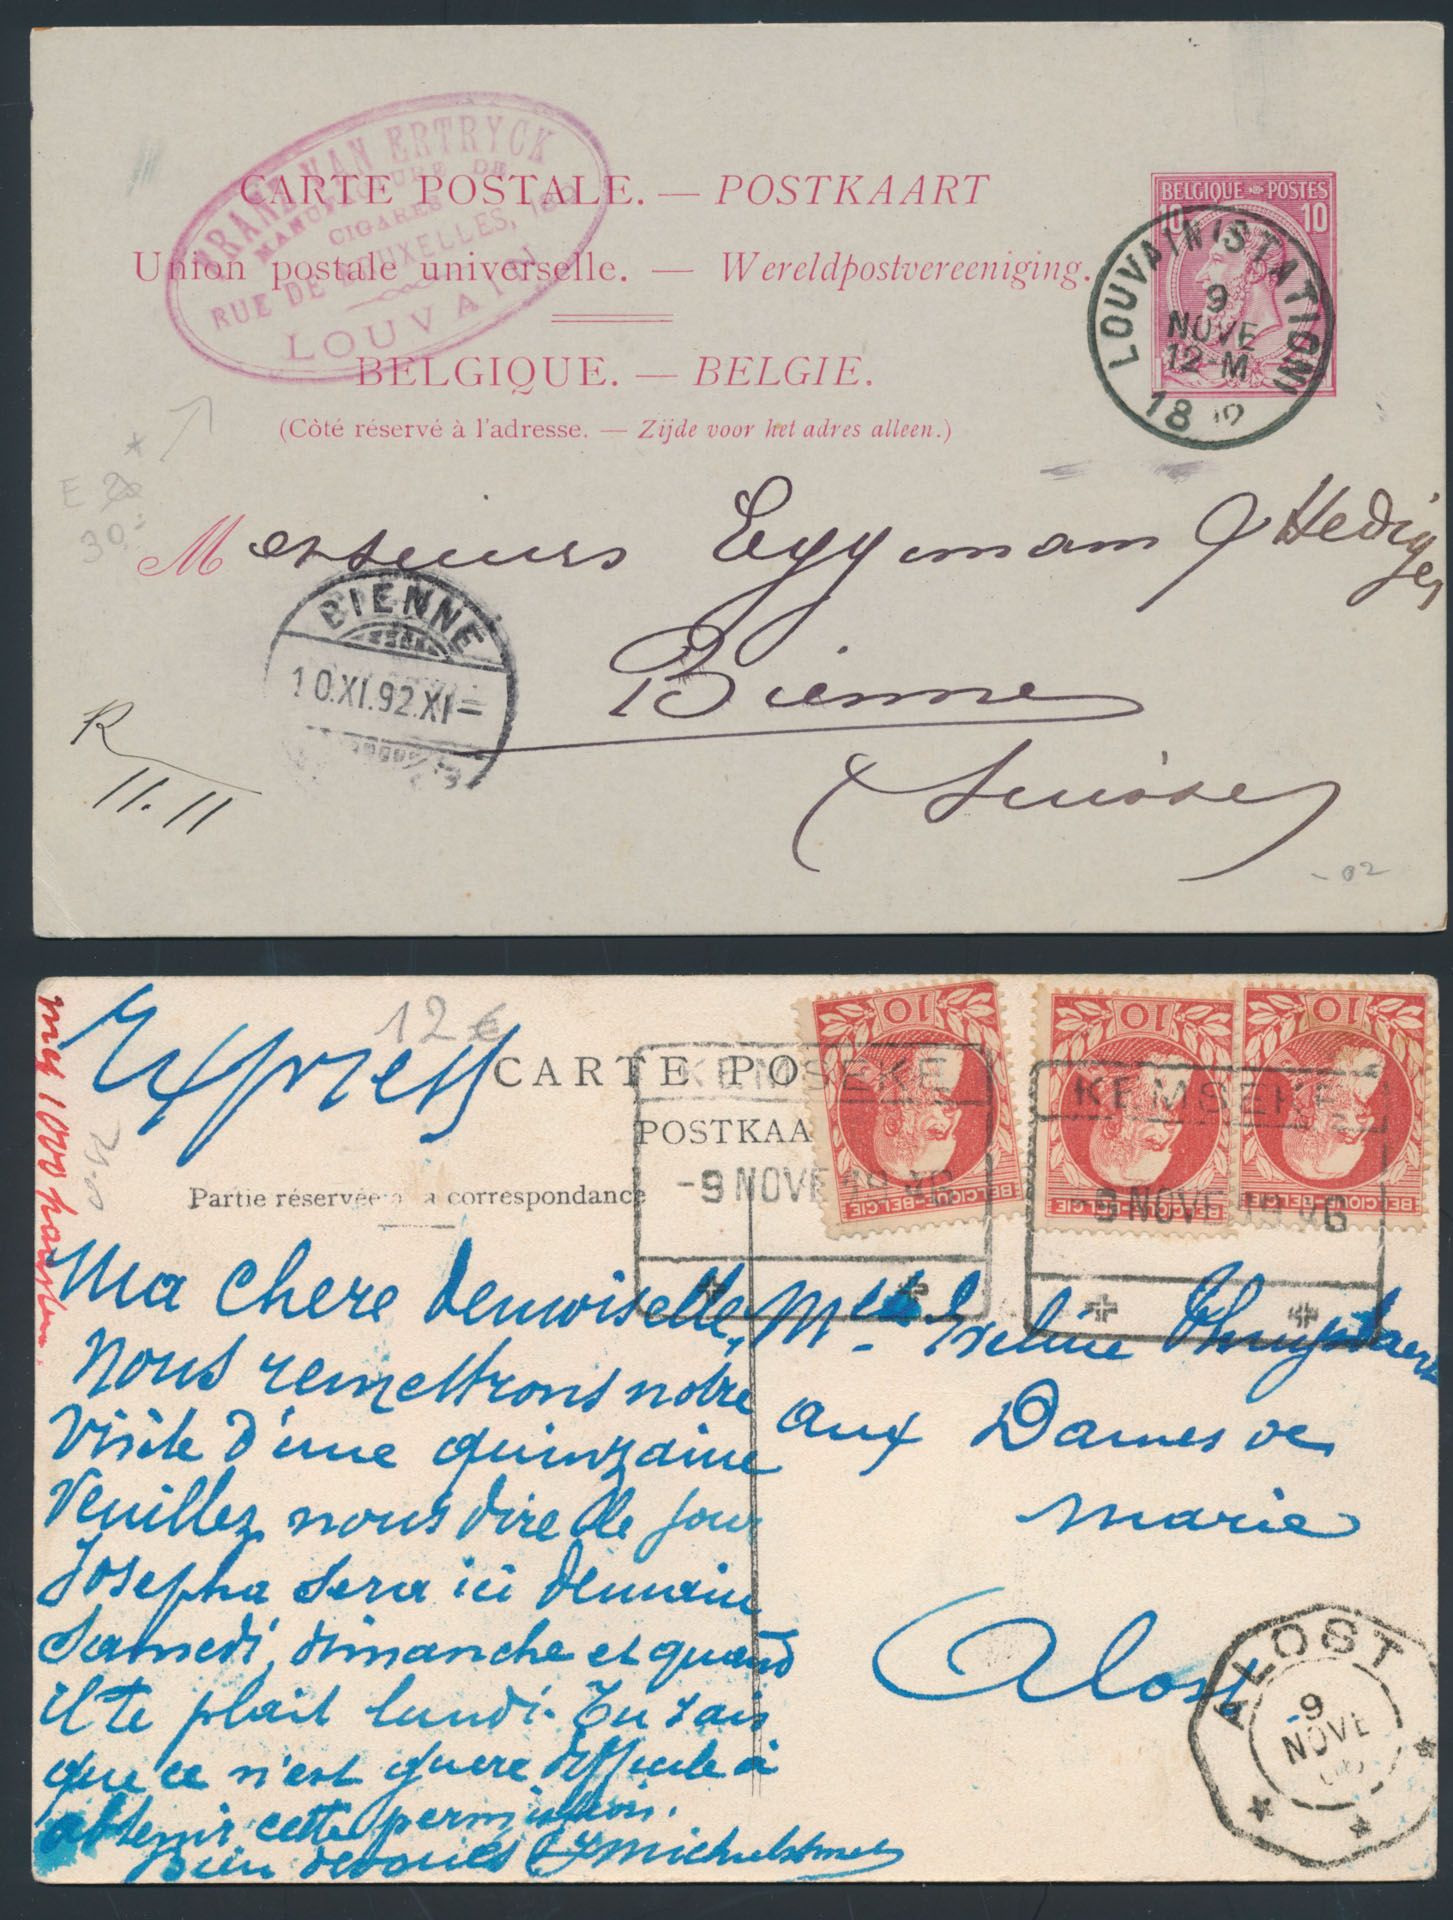 FRANZ VAN ERTRYCK
MANUFACTURE DE
CIGARES
RUE DE BRUXELLES,
LOUVAIN
CARTE POSTALE. — POSTKAART
Union postale universelle. — Wereldpostvereeniging.
BELGIQUE. — BELGIE.
(Côté réservé à l'adresse. — Zijde voor het adres alleen.)
BELGIQUE POSTES
10 10
LOUVAIN (STATION)
9
NOVE
12-M
18
E
30.-
Messieurs Eggimann & Hediger
Bienne
(Suisse)
BIENNE
10.XI.92.XI
R
11.11
-02
Express
12 €
CARTE PO
POSTKAA
Partie réservée à la correspondance
10
10
10
BELGIQUE-BELGIE
BELGIQUE-BELGIE
BELGIQUE-BELGIE
KEMSEKE
-9 NOVE 19
KEMSEKE
-9 NOVE 19 06
Ma chere demoiselle,
Nous remettrons notre
visite d'une quinzaine
Veuillez nous dire le jour
Josepha sera ici demain
Samedi, dimanche et quand
il te plait lundi. Tu sais
que ce n'est guere difficile à
obtenir cette permission.
Bien devoués
Mlle
aux Dames de
Marie
Alost
ALOST
-9
NOVE